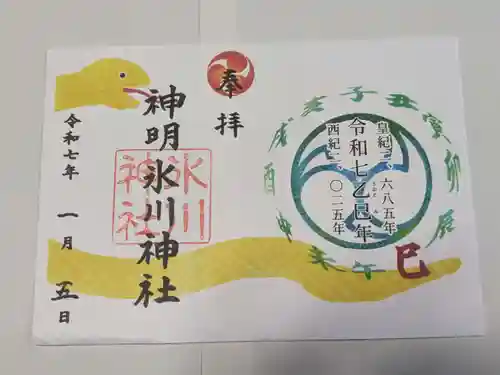 皇紀二、六八五年
令和七乙巳年
きのとみ
西紀二、〇二五年
子丑寅卯辰巳午未申酉戌亥
奉拝
神明氷川神社
氷川
神社
令和七年 一月 五日